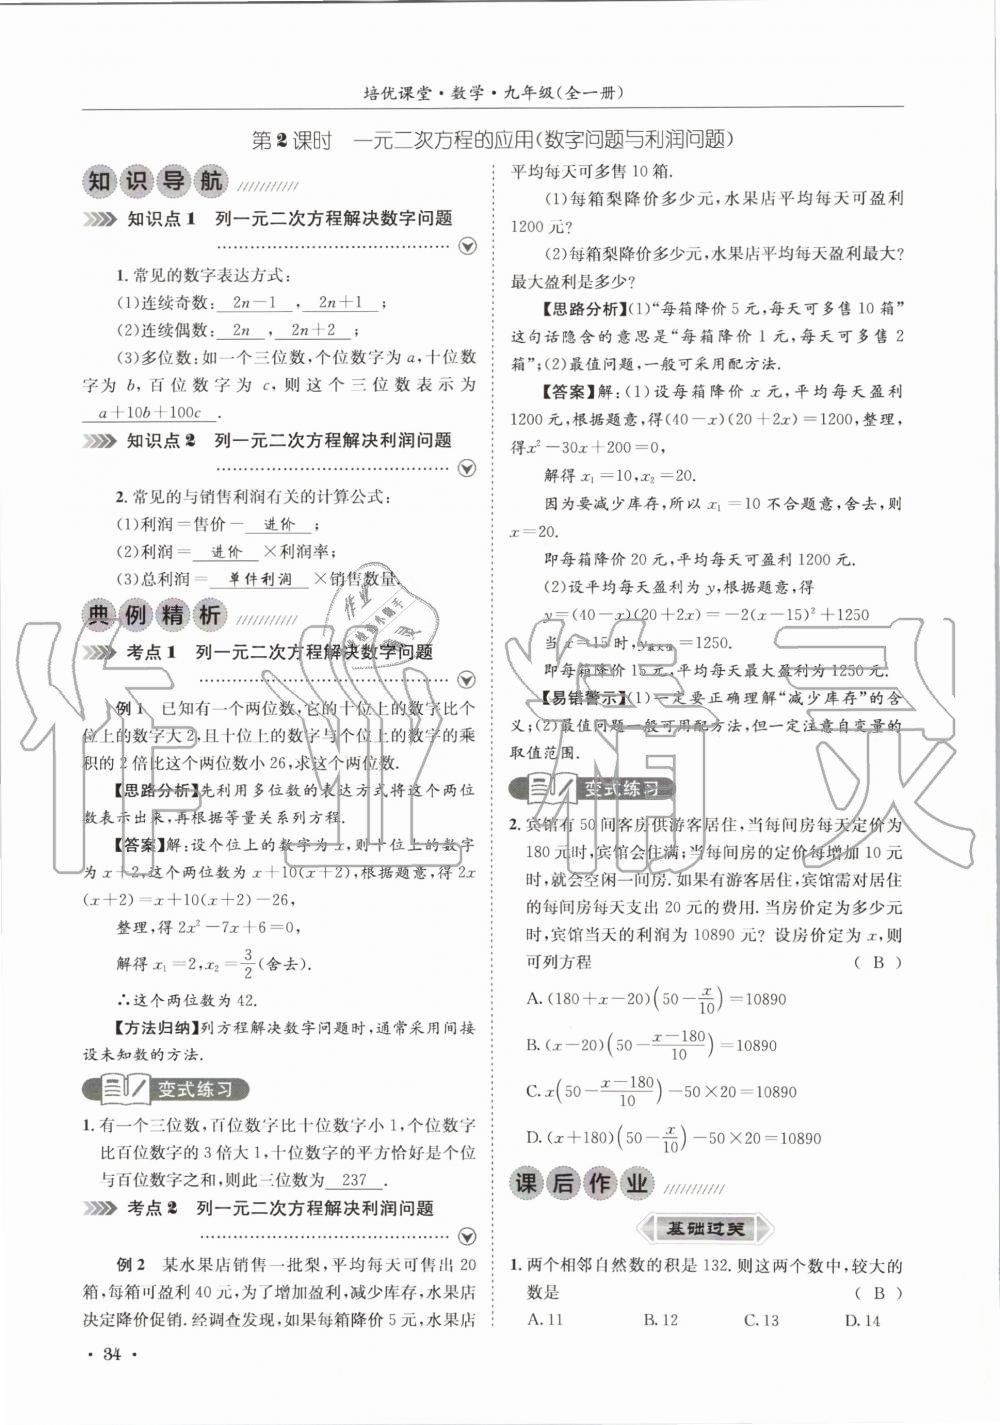 培优课堂·数学·九年级(全一册)
第2课时 一元二次方程的应用(数字问题与利润问题)
知识导航
知识点1 列一元二次方程解决数字问题
1.常见的数字表达方式:
(1)连续奇数: 2n-1 , 2n+1 ;
(2)连续偶数: 2n , 2n+2 ;
(3)多位数:如一个三位数,个位数字为a,十位数
字为 b,百位数字为 c,则这个三位数表示为
a+10b+100c .
知识点2 列一元二次方程解决利润问题
2.常见的与销售利润有关的计算公式:
(1)利润=售价- 进价 ;
(2)利润= 进价 ×利润率;
(3)总利润= 单件利润 ×销售数量.
典例精析
考点1 列一元二次方程解决数字问题
例1 已知有一个两位数,它的十位上的数字比个
位上的数字大2,且十位上的数字与个位上的数字的乘
积的2倍比这个两位数小26,求这个两位数.
【思路分析】先利用多位数的表达方式将这个两位
数表示出来,再根据等量关系列方程.
【答案】解:设个位上的数字为x,则十位上的数字
为x+2,这个两位数为x+10(x+2),根据题意,得2x
(x+2)=x+10(x+2)-26,
整理,得2x²-7x+6=0,
解得x₁=2,x₂=3/2(舍去).
∴这个两位数为42.
【方法归纳】列方程解决数字问题时,通常采用间接
设未知数的方法.
变式练习
1.有一个三位数,百位数字比十位数字小1,个位数字
比百位数字的3倍大1,十位数字的平方恰好是个位
与百位数字之和,则此三位数为 237 .
考点2 列一元二次方程解决利润问题
例2 某水果店销售一批梨,平均每天可售出20
箱,每箱可盈利40元,为了增加盈利,减少库存,水果店
决定降价促销.经调查发现,如果每箱降价5元,水果店
·34·
平均每天可多售10箱.
(1)每箱梨降价多少元,水果店平均每天可盈利
1200元?
(2)每箱梨降价多少元,水果店平均每天盈利最大?
最大盈利是多少?
【思路分析】(1)“每箱降价5元,每天可多售10箱”
这句话隐含的意思是“每箱降价1元,每天可多售2
箱”;(2)最值问题,一般可采用配方法.
【答案】解:(1)设每箱降价x元,平均每天盈利
1200元,根据题意,得(40-x)(20+2x)=1200,整理,
得x²-30x+200=0,
解得x₁=10,x₂=20.
因为要减少库存,所以x₁=10不合题意,舍去,则
x=20.
即每箱降价20元,平均每天可盈利1200元.
(2)设平均每天盈利为y,根据题意,得
y=(40-x)(20+2x)=-2(x-15)²+1250
当x=15时,y最大值=1250.
即每箱降价15元,平均每天最大盈利为1250元.
【易错警示】(1)一定要正确理解“减少库存”的含
义;(2)最值问题一般可用配方法,但一定注意自变量的
取值范围.
变式练习
2.宾馆有50间客房供游客居住,当每间房每天定价为
180元时,宾馆会住满;当每间房的定价每增加10元
时,就会空闲一间房.如果有游客居住,宾馆需对居住
的每间房每天支出20元的费用.当房价定为多少元
时,宾馆当天的利润为10890元?设房价定为x元,则
可列方程 ( B )
A.(180+x-20)(50-x/10)=10890
B.(x-20)(50-(x-180)/10)=10890
C.x(50-(x-180)/10)-50×20=10890
D.(x+180)(50-x/10)-50×20=10890
课后作业
基础过关
1.两个相邻自然数的积是132.则这两个数中,较大的
数是 ( B )
A.11 B.12 C.13 D.14
作业精灵